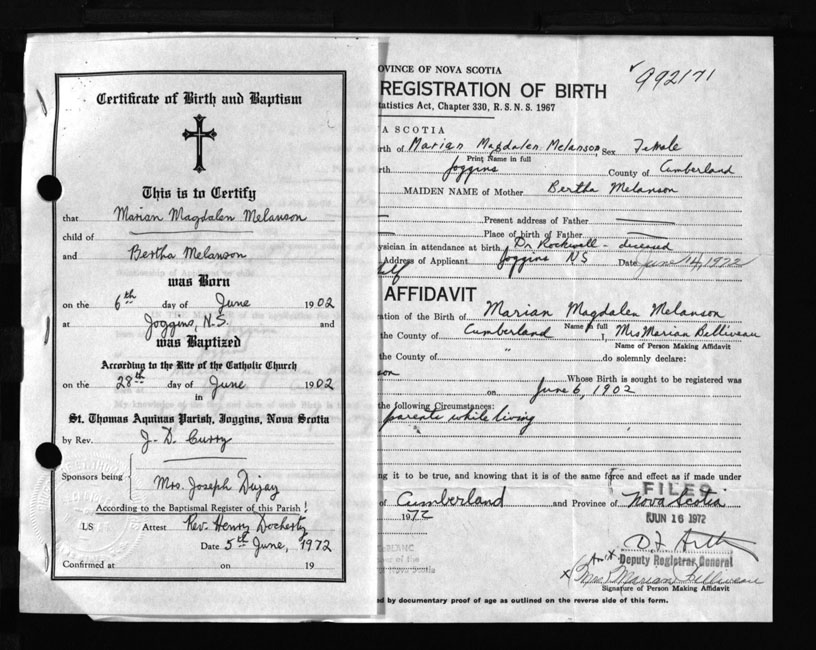 Certificate of Birth and Baptism
This is to Certify
that Marian Magdalen Melanson
child of
and Bertha Melanson
was Born
on the 6th day of June 1902
at Joggins, N.S. and
was Baptized
According to the Rite of the Catholic Church
on the 28th day of June 1902
in
St. Thomas Aquinas Parish, Joggins, Nova Scotia
by Rev. J. D. Curry
Sponsors being Mrs. Joseph
According to the Baptismal Register of this Parish
LS Attest Rev. Henry Docherty
Date 5th June, 1972
Confirmed at on 19
OVINCE OF NOVA SCOTIA
992171
REGISTRATION OF BIRTH
tatistics Act, Chapter 330, R.S.N.S. 1967
A SCOTIA
rth of Marian Magdalen Melanson, Sex Female
Print Name in full
rth Joggins County of Cumberland
MAIDEN NAME of Mother Bertha Melanson
Present address of Father
Place of birth of Father
ysician in attendance at birth Dr Rockwell - deceased
Address of Applicant Joggins NS Date June 14, 1972
elf
AFFIDAVIT
ation of the Birth of Marian Magdalen Melanson
Name in full
the County of Cumberland I, Mrs Marian Belliveau
Name of Person Making Affidavit
the County of " do solemnly declare:
son Whose Birth is sought to be registered was
on June 6, 1902
the following Circumstances:
parents while living
ng it to be true, and knowing that it is of the same force and effect as if made under
FILED
of Cumberland and Province of Nova Scotia
1972
JUN 16 1972
LEBLANC
Deputy Registrar General
X Mrs Marian Belliveau
Signature of Person Making Affidavit
ed by documentary proof of age as outlined on the reverse side of this form.